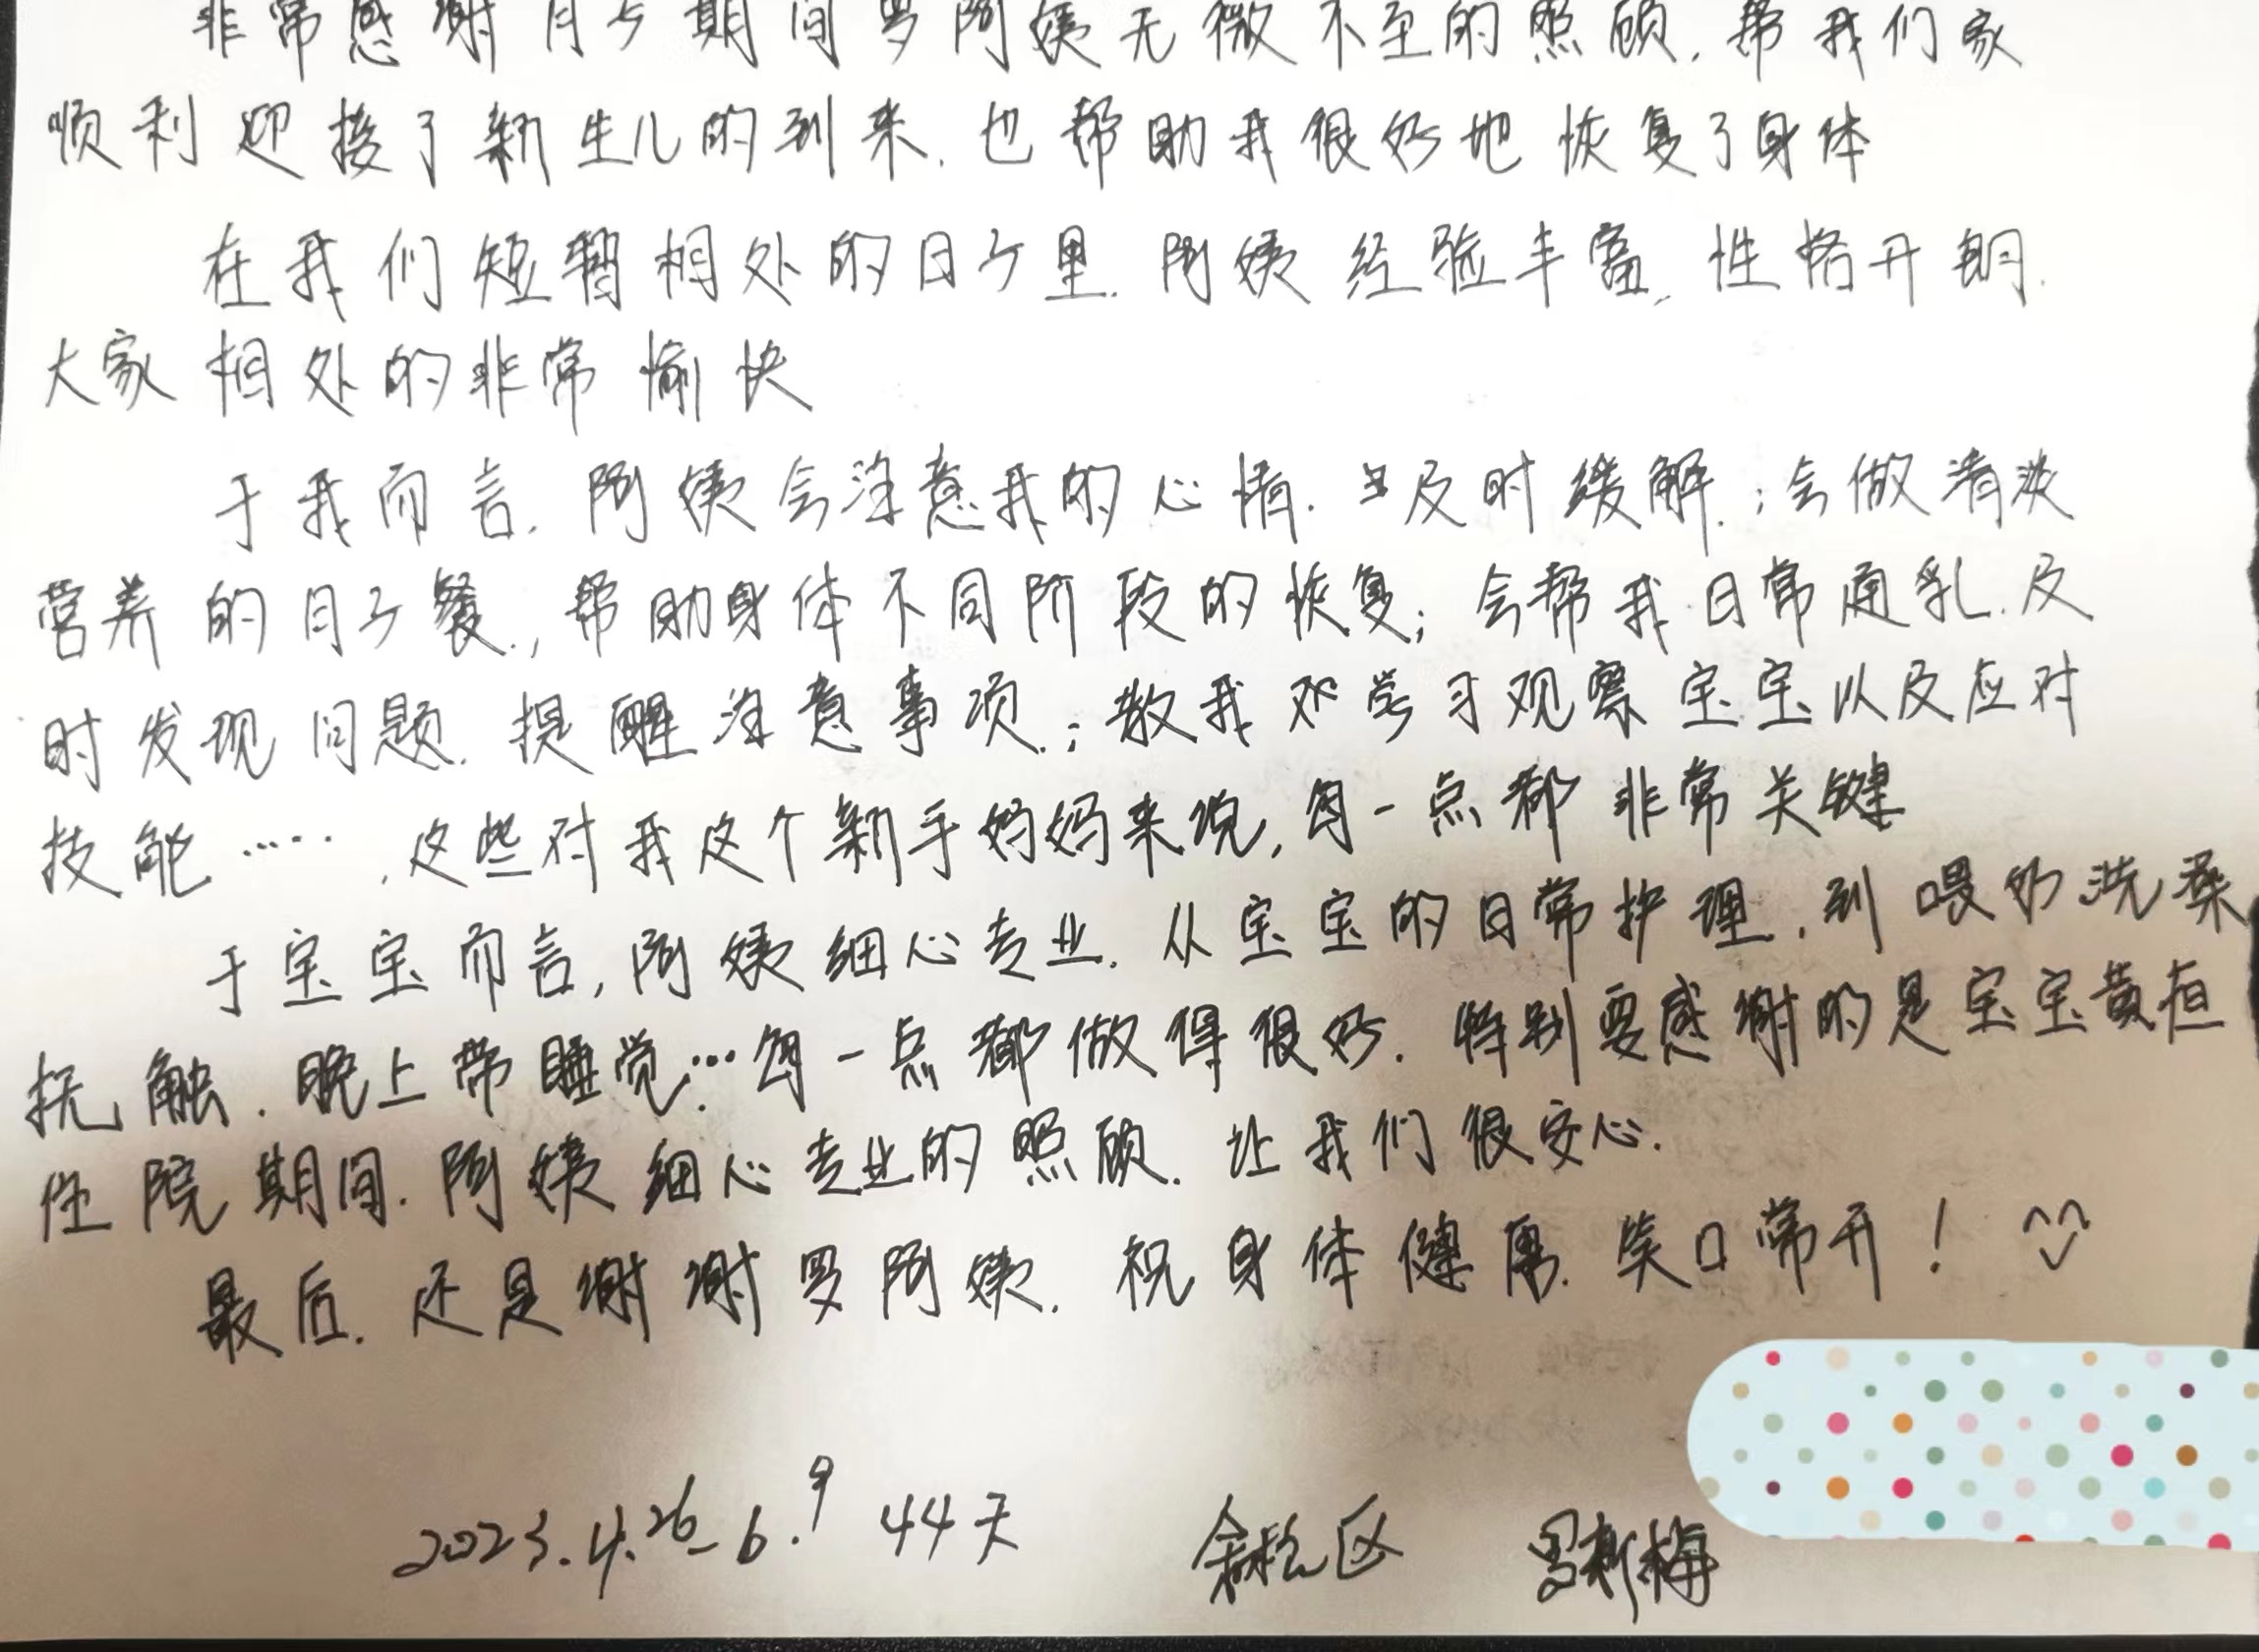 非常感谢月子期间罗阿姨无微不至的照顾,帮我们家
顺利迎接了新生儿的到来.也帮助我很好地恢复了身体
在我们短暂相处的日子里.阿姨经验丰富,性格开朗.
大家相处的非常愉快
于我而言.阿姨会注意我的心情.及时缓解.;会做清淡
营养的月子餐.,帮助身体不同阶段的恢复;会帮我日常通乳.及
时发现问题.提醒注意事项.;教我学习观察宝宝以及应对
技能…..,这些对我这个新手妈妈来说,每一点都非常关键
于宝宝而言,阿姨细心专业.从宝宝的日常护理.到喂奶洗澡
抚触.晚上带睡觉…每一点都做得很好.特别要感谢的是宝宝黄疸
住院期间.阿姨细心专业的照顾.让我们很安心.
最后.还是谢谢罗阿姨.祝身体健康.笑口常开!
2023.4.26-6.9 44天 余杭区 罗新梅